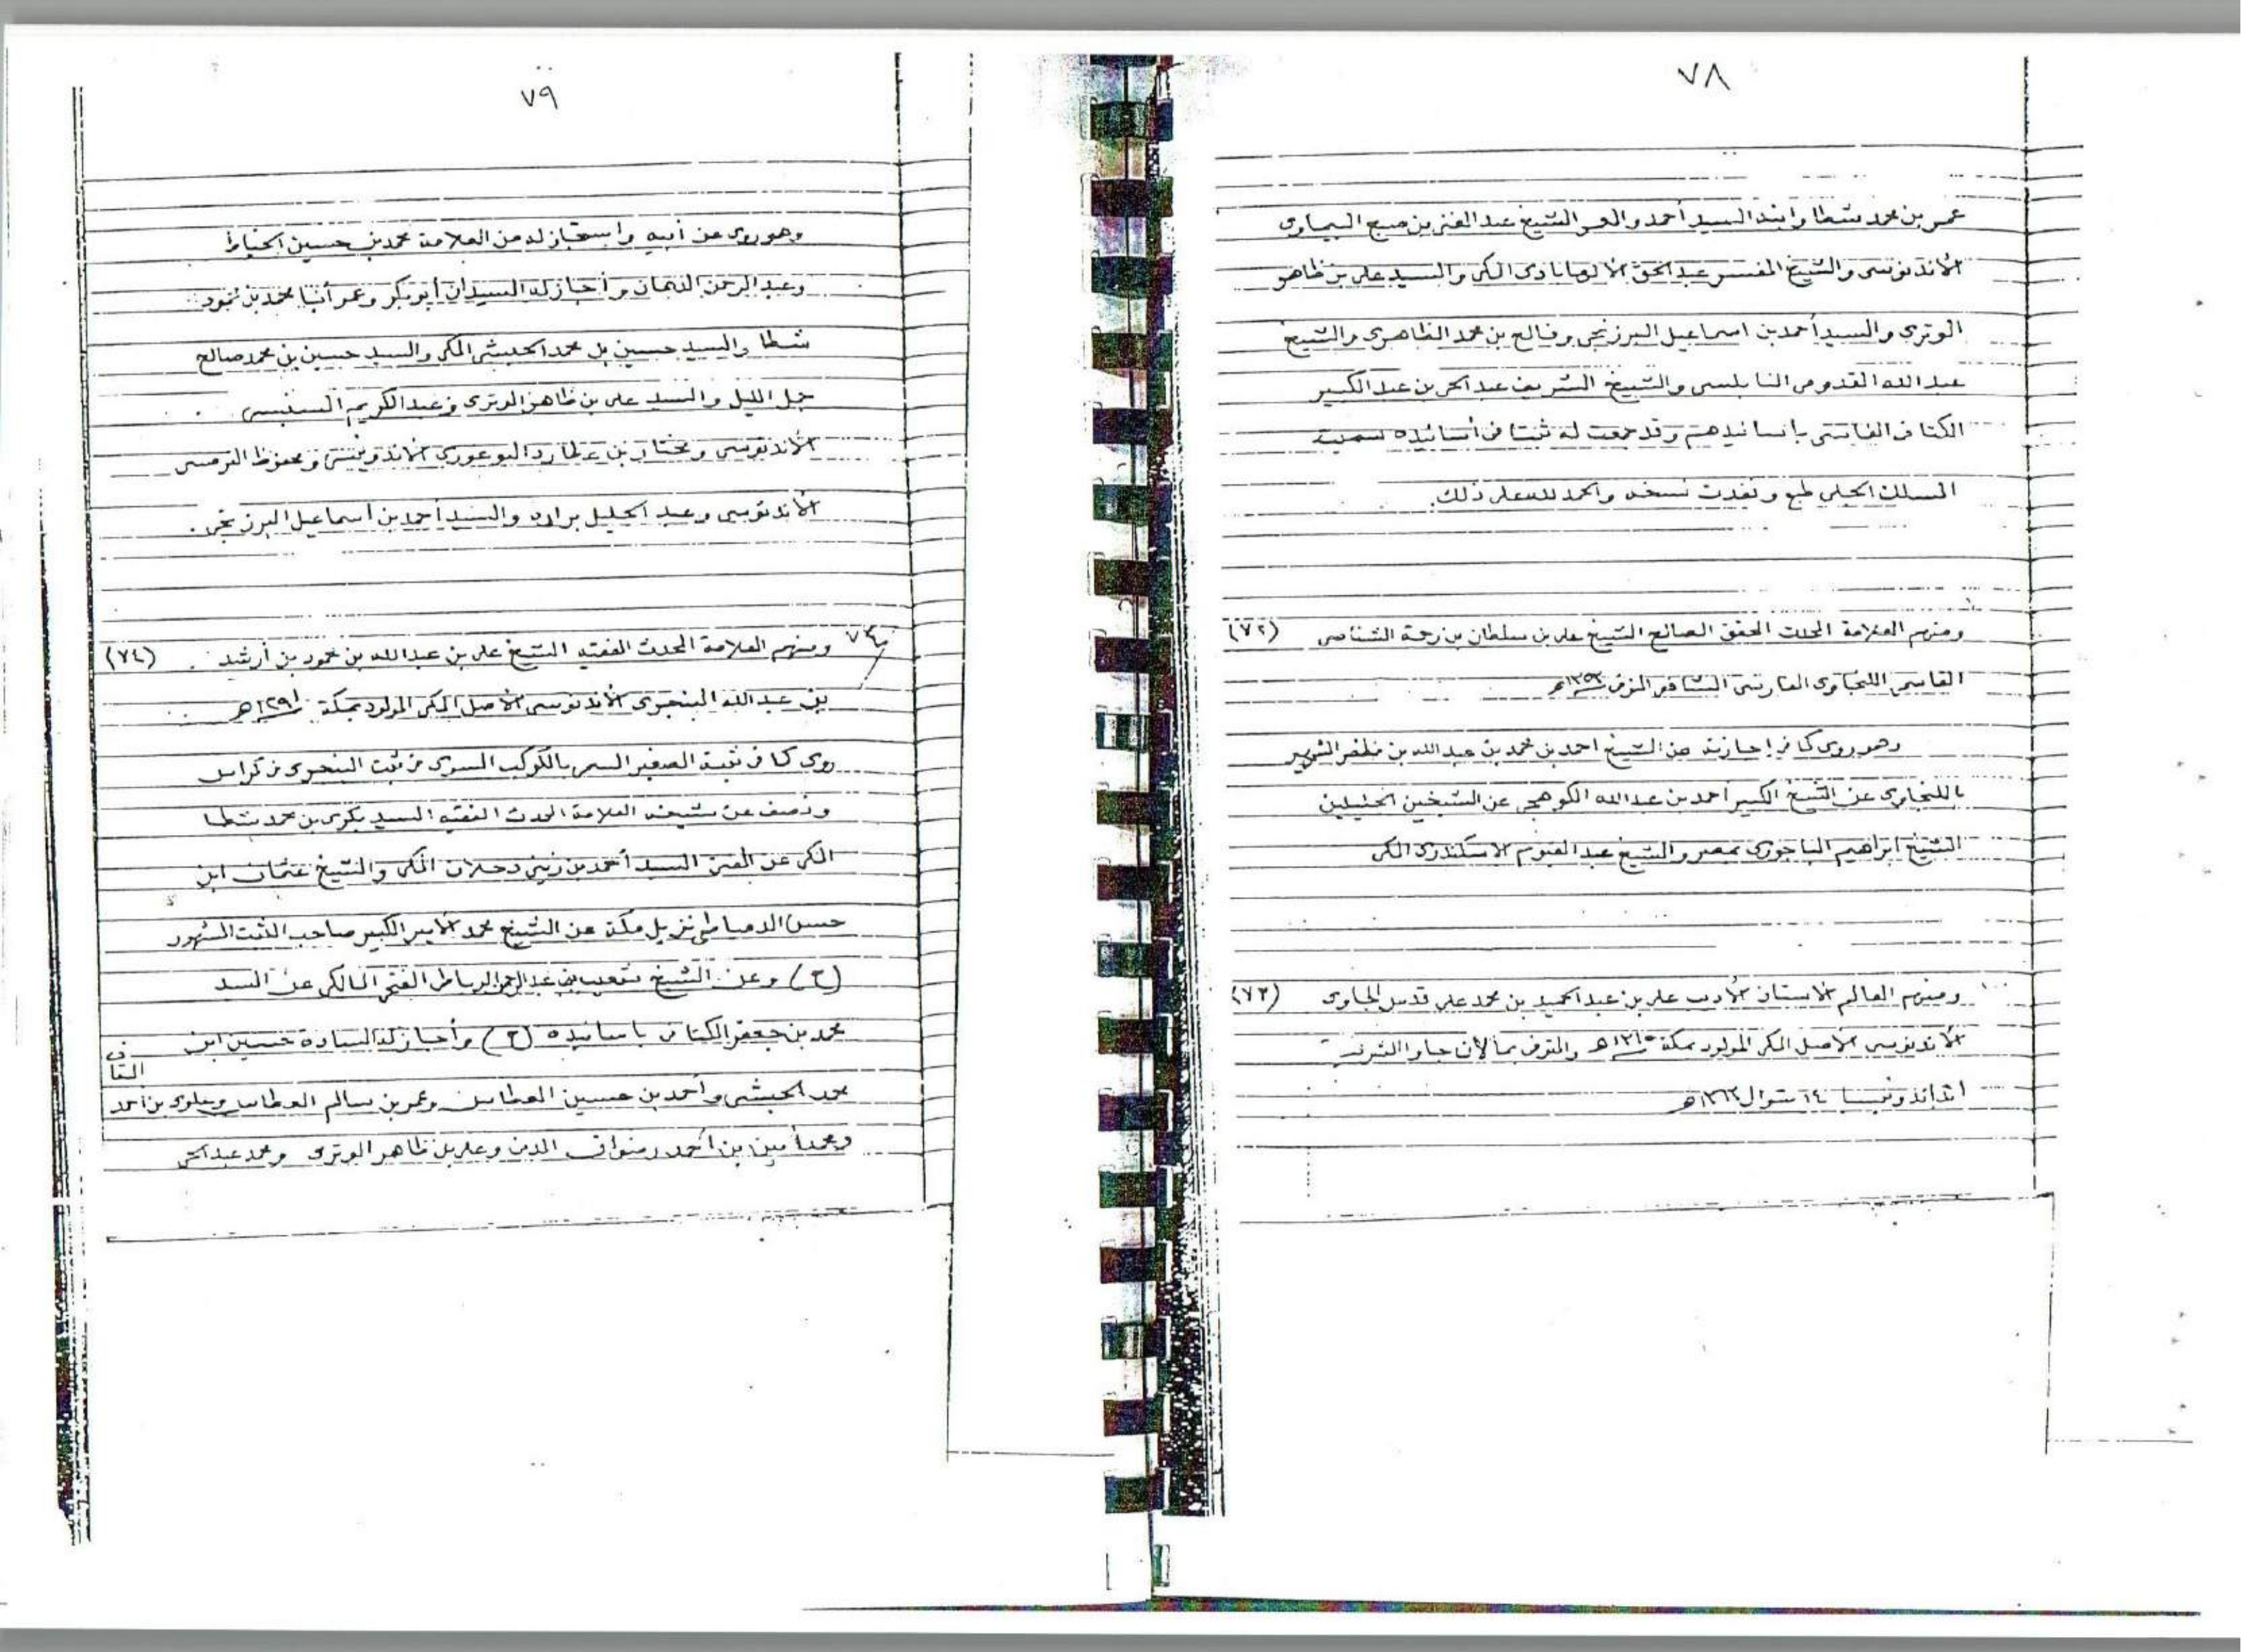 ٧٨
عمر بن محمد شطا وابنه السيد أحمد والعم الشيخ عبد العزيز بن صبح البيماوى
الأندنوسى والشيخ المفسر عبد الحق الاله ابادى المكى والسيد على بن ظاهر
الوترى والسيد أحمد بن اسماعيل البرزنجى وفالح بن محمد الظاهرى والشيخ
عبد الله القدومى النابلسى والشيخ الشريف عبد الحى بن عبد الكبير
الكتانى الفاسى بأسانيدهم وقد جمعت له ثبتا فى أسانيده سميته
المسلك الجلى طبع ونفدت نسخه والحمد لله على ذلك.
ومنهم العلامة المحدث المحقق الصالح الشيخ على بن سلطان بن رحمة الشناصى (٧٢)
القاسمى اللنجاوى الفارسى الشافعى المتوفى
وهو روى كما فى إجازته عن الشيخ احمد بن محمد بن عبد الله بن مظفر الشهير
باللنجاوى عن الشيخ الكبير أحمد بن عبد الله الكوهجى عن الشيخين الجليلين
الشيخ ابراهيم الباجورى بمصر والشيخ عبد القيوم الاسكندرى المكى
ومنهم العالم الأستاذ الأديب على بن عبد الحميد بن محمد على قدس الجاوى (٧٣)
الأندنوسى الأصل المكى المولود بمكة ١٣١٠هـ والمتوفى بمالان جاوا الشرقية
اندونيسيا ١٤ شوال ١٣٦٣هـ
٧٩
وهو روى عن أبيه واستجاز له من العلامة محمد بن حسين الخياط
وعبد الرحمن الدهان وأجاز له السيدان أبو بكر وعمر أبنا محمد بن محمود
شطا والسيد حسين بن محمد الحبشى المكى والسيد حسين بن محمد صالح
جمل الليل والسيد على بن ظاهر الوترى وعبد الكريم السمبسى
الأندنوسى ومختار بن عطارد البوغورى الأندونيسى ومحفوظ الترمسى
الأندنوسى وعبد الجليل براده والسيد أحمد بن أسماعيل البرزنجى.
ومنهم العلامة المحدث الفقيه الشيخ على بن عبد الله بن محمود بن أرشد (٧٤)
بن عبد الله البنجرى الأندنوسى الأصل المكى المولود بمكة ١٢٩١هـ
روى كما فى ثبته الصغير المسمى بالكوكب السرى فى ثبت البنجرى فى كراس
ونصف عن شيخه العلامة المحدث الفقيه السيد بكرى بن محمد شطا
المكى عن المفتى السيد أحمد بن زينى دحلان المكى والشيخ عثمان ابن
حسن الدمياطى نزيل مكة عن الشيخ محمد الأمير الكبير صاحب الثبت الشهور
(ح) وعن الشيخ شعيب بن عبد الرحمن الرباطى الفقيه المالكى عن السيد
محمد بن جعفر الكتانى بأسانيده (ح) وأجاز له السادة حسين ابن
محمد الحبشى وأحمد بن حسين العطاس وعمر بن سالم العطاس وعلوى بن أحمد السقاف
ومحمد أمين بن أحمد رضوان المدنى وعلى بن ظاهر الوترى ومحمد عبد الحى